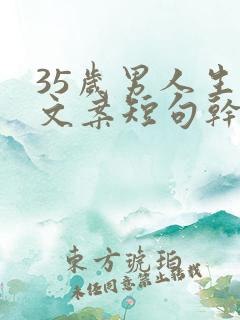 35歲男人生
文案短句幹
東方琥珀
未任同意禁止轉載